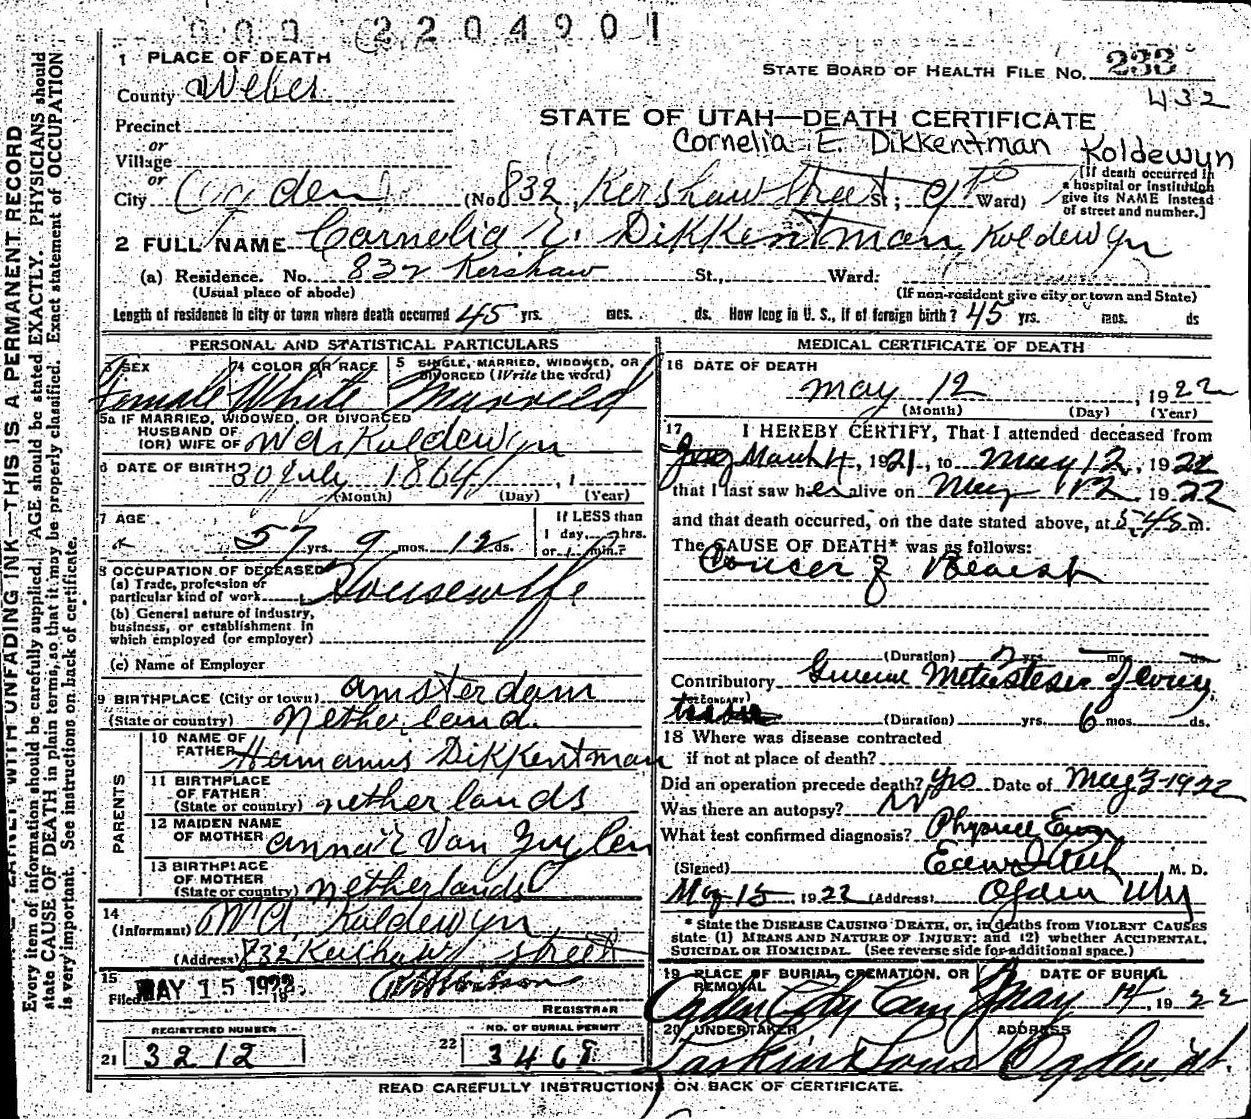 000 2204901
1 PLACE OF DEATH
County Weber
STATE BOARD OF HEALTH FILE NO. 233
432
Precinct
or
Village
or
STATE OF UTAH—DEATH CERTIFICATE
Cornelia E. Dikkentman Koldewyn
City Ogden (No. 832 Kershaw Street St; Ward)
[If death occurred in a hospital or institution give its NAME instead of street and number.]
2 FULL NAME Cornelia E. Dikkentman Koldewyn
(a) Residence. No. 832 Kershaw St., Ward:
(Usual place of abode) (If non-resident give city or town and State)
Length of residence in city or town where death occurred 45 yrs. mos. ds. How long in U. S., if of foreign birth? 45 yrs. mos. ds
PERSONAL AND STATISTICAL PARTICULARS
3 SEX Female
4 COLOR OR RACE White
5 SINGLE, MARRIED, WIDOWED, OR DIVORCED (Write the word) Married
5a IF MARRIED, WIDOWED, OR DIVORCED
HUSBAND OF
(OR) WIFE OF Koldewyn
6 DATE OF BIRTH 30 July 1864, 1
(Month) (Day) (Year)
7 AGE 57 yrs. 9 mos. 12 ds.
If LESS than
1 day hrs.
or min.?
8 OCCUPATION OF DECEASED
(a) Trade, profession or
particular kind of work Housewife
(b) General nature of industry,
business, or establishment in
which employed (or employer)
(c) Name of Employer
9 BIRTHPLACE (City or town) amsterdam
(State or country) Netherland.
PARENTS
10 NAME OF
FATHER Hermanus Dikkentman
11 BIRTHPLACE
OF FATHER
(State or country) netherlands
12 MAIDEN NAME
OF MOTHER Van Zuylen
13 BIRTHPLACE
OF MOTHER
(State or country) netherlands
14
(Informant) Koldewyn
(Address) 832 Kershaw street
15
Filed MAY 15 1922 19
REGISTRAR
21 REGISTERED NUMBER 3212
22 NO. OF BURIAL PERMIT 3468
MEDICAL CERTIFICATE OF DEATH
16 DATE OF DEATH
May 12, 1922
(Month) (Day) (Year)
17 I HEREBY CERTIFY, That I attended deceased from
March 4, 1921, to May 12, 1922
that I last saw her alive on May 12 1922
and that death occurred, on the date stated above, at 5:45 m.
The CAUSE OF DEATH* was as follows:
Cancer of Breast
(Duration) 2 yrs. mos. ds.
Contributory General Metastases of every
(SECONDARY)
(Duration) yrs. 6 mos. ds.
18 Where was disease contracted
if not at place of death?
Did an operation precede death? yes Date of May 3-1922
Was there an autopsy? No
What test confirmed diagnosis? Physical
(Signed) M. D.
May 15 1922 (Address) Ogden Utah
* State the DISEASE CAUSING DEATH, or, in deaths from VIOLENT CAUSES
state (1) MEANS AND NATURE OF INJURY; and (2) whether ACCIDENTAL,
SUICIDAL OR HOMICIDAL. (See reverse side for additional space.)
19 PLACE OF BURIAL, CREMATION, OR REMOVAL
Ogden City Cem
DATE OF BURIAL
May 14, 1922
20 UNDERTAKER
Larkin & Sons
ADDRESS
Ogden, Ut.
READ CAREFULLY INSTRUCTIONS ON BACK OF CERTIFICATE.
WITH UNFADING INK—THIS IS A PERMANENT RECORD
Every item of information should be carefully supplied. AGE should be stated EXACTLY. PHYSICIANS should
state CAUSE OF DEATH in plain terms, so that it may be properly classified. Exact statement of OCCUPATION
is very important. See instructions on back of certificate.